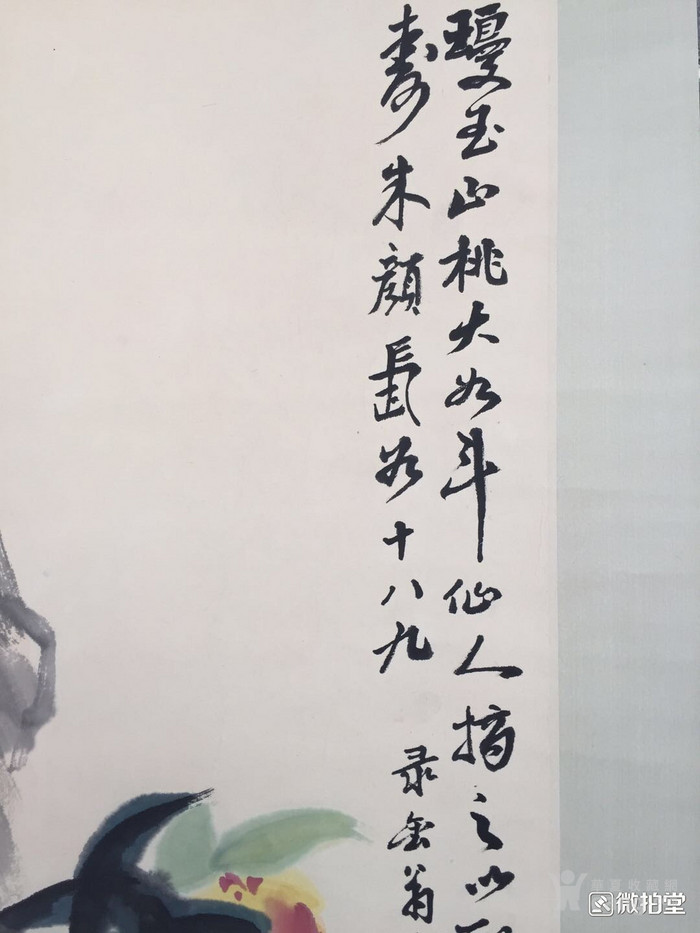 瓊玉山桃大如斗仙人摘之以
壽朱顏長如十八九
录缶翁
微拍堂